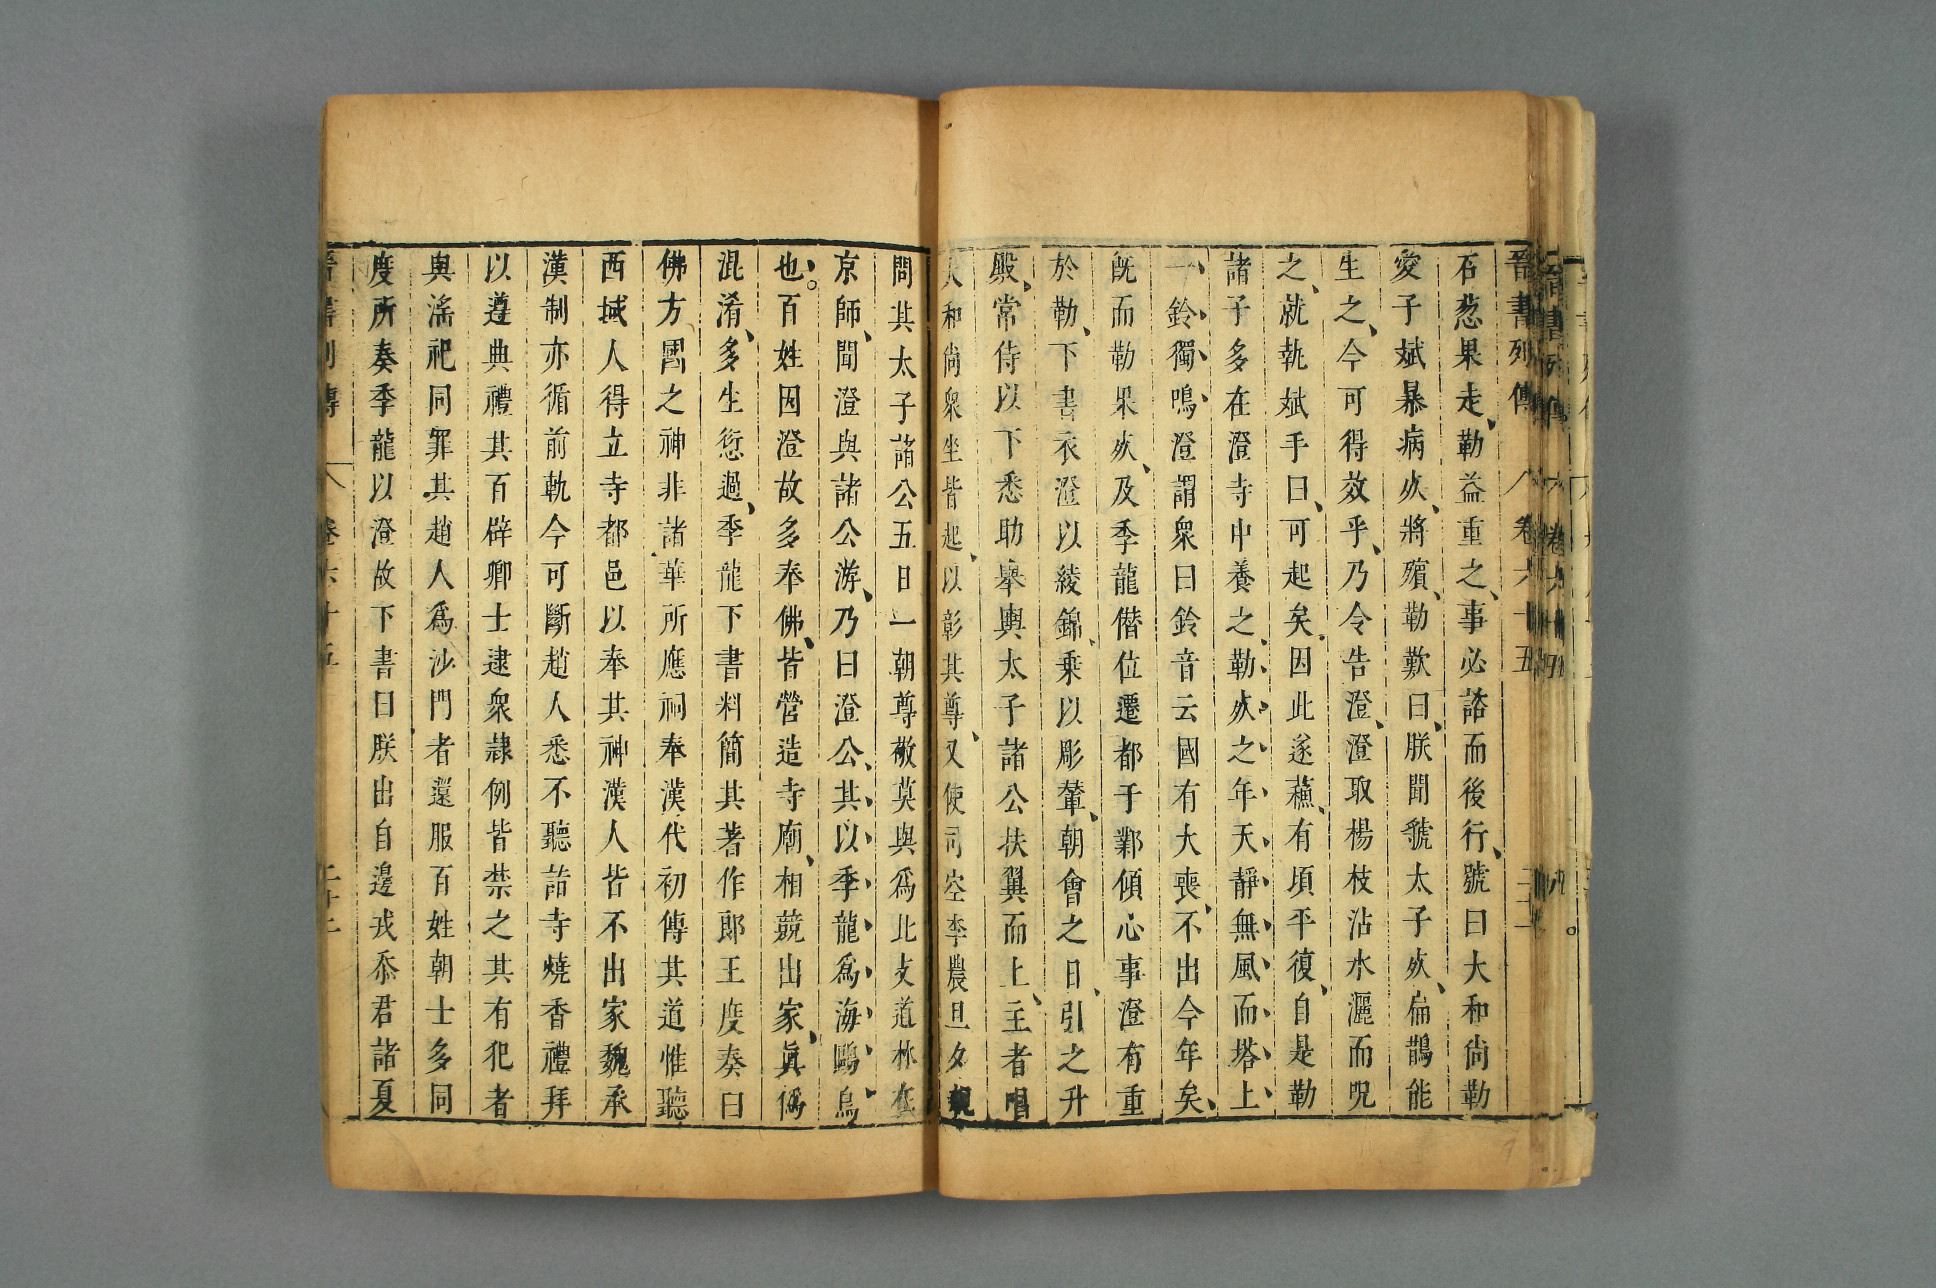 晉書列傳 卷六十五
石葱果走勒益重之事必諮而後行號曰大和尙勒
愛子斌暴病死將殯勒歎曰朕聞虢太子死扁鵲能
生之今可得效乎乃令告澄澄取楊枝沾水灑而呪
之就執斌手曰可起矣因此遂蘓有頃平復自是勒
諸子多在澄寺中養之勒死之年天靜無風而塔上
一鈴獨鳴澄謂衆曰鈴音云國有大喪不出今年矣
旣而勒果死及季龍僭位遷都于鄴傾心事澄有重
於勒下書衣澄以綾錦乘以彫輦朝會之日引之升
殿常侍以下悉助舉輿太子諸公扶翼而上主者唱
大和尙衆坐皆起以彰其尊又使司空李農旦夕親
問其太子諸公五日一朝尊敬莫與爲比支道林在
京師聞澄與諸公游乃曰澄公其以季龍爲海鷗鳥
也。百姓因澄故多奉佛皆營造寺廟相競出家眞僞
混淆多生愆過季龍下書料簡其著作郎王度奏曰
佛方國之神非諸華所應祠奉漢代初傳其道惟聽
西域人得立寺都邑以奉其神漢人皆不出家魏承
漢制亦循前軌今可斷趙人悉不聽詣寺燒香禮拜
以遵典禮其百辟卿士逮衆隷例皆禁之其有犯者
與滛祀同罪其趙人爲沙門者還服百姓朝士多同
度所奏季龍以澄故下書曰朕出自邊戎忝君諸夏
晉書列傳 卷六十五 二十二